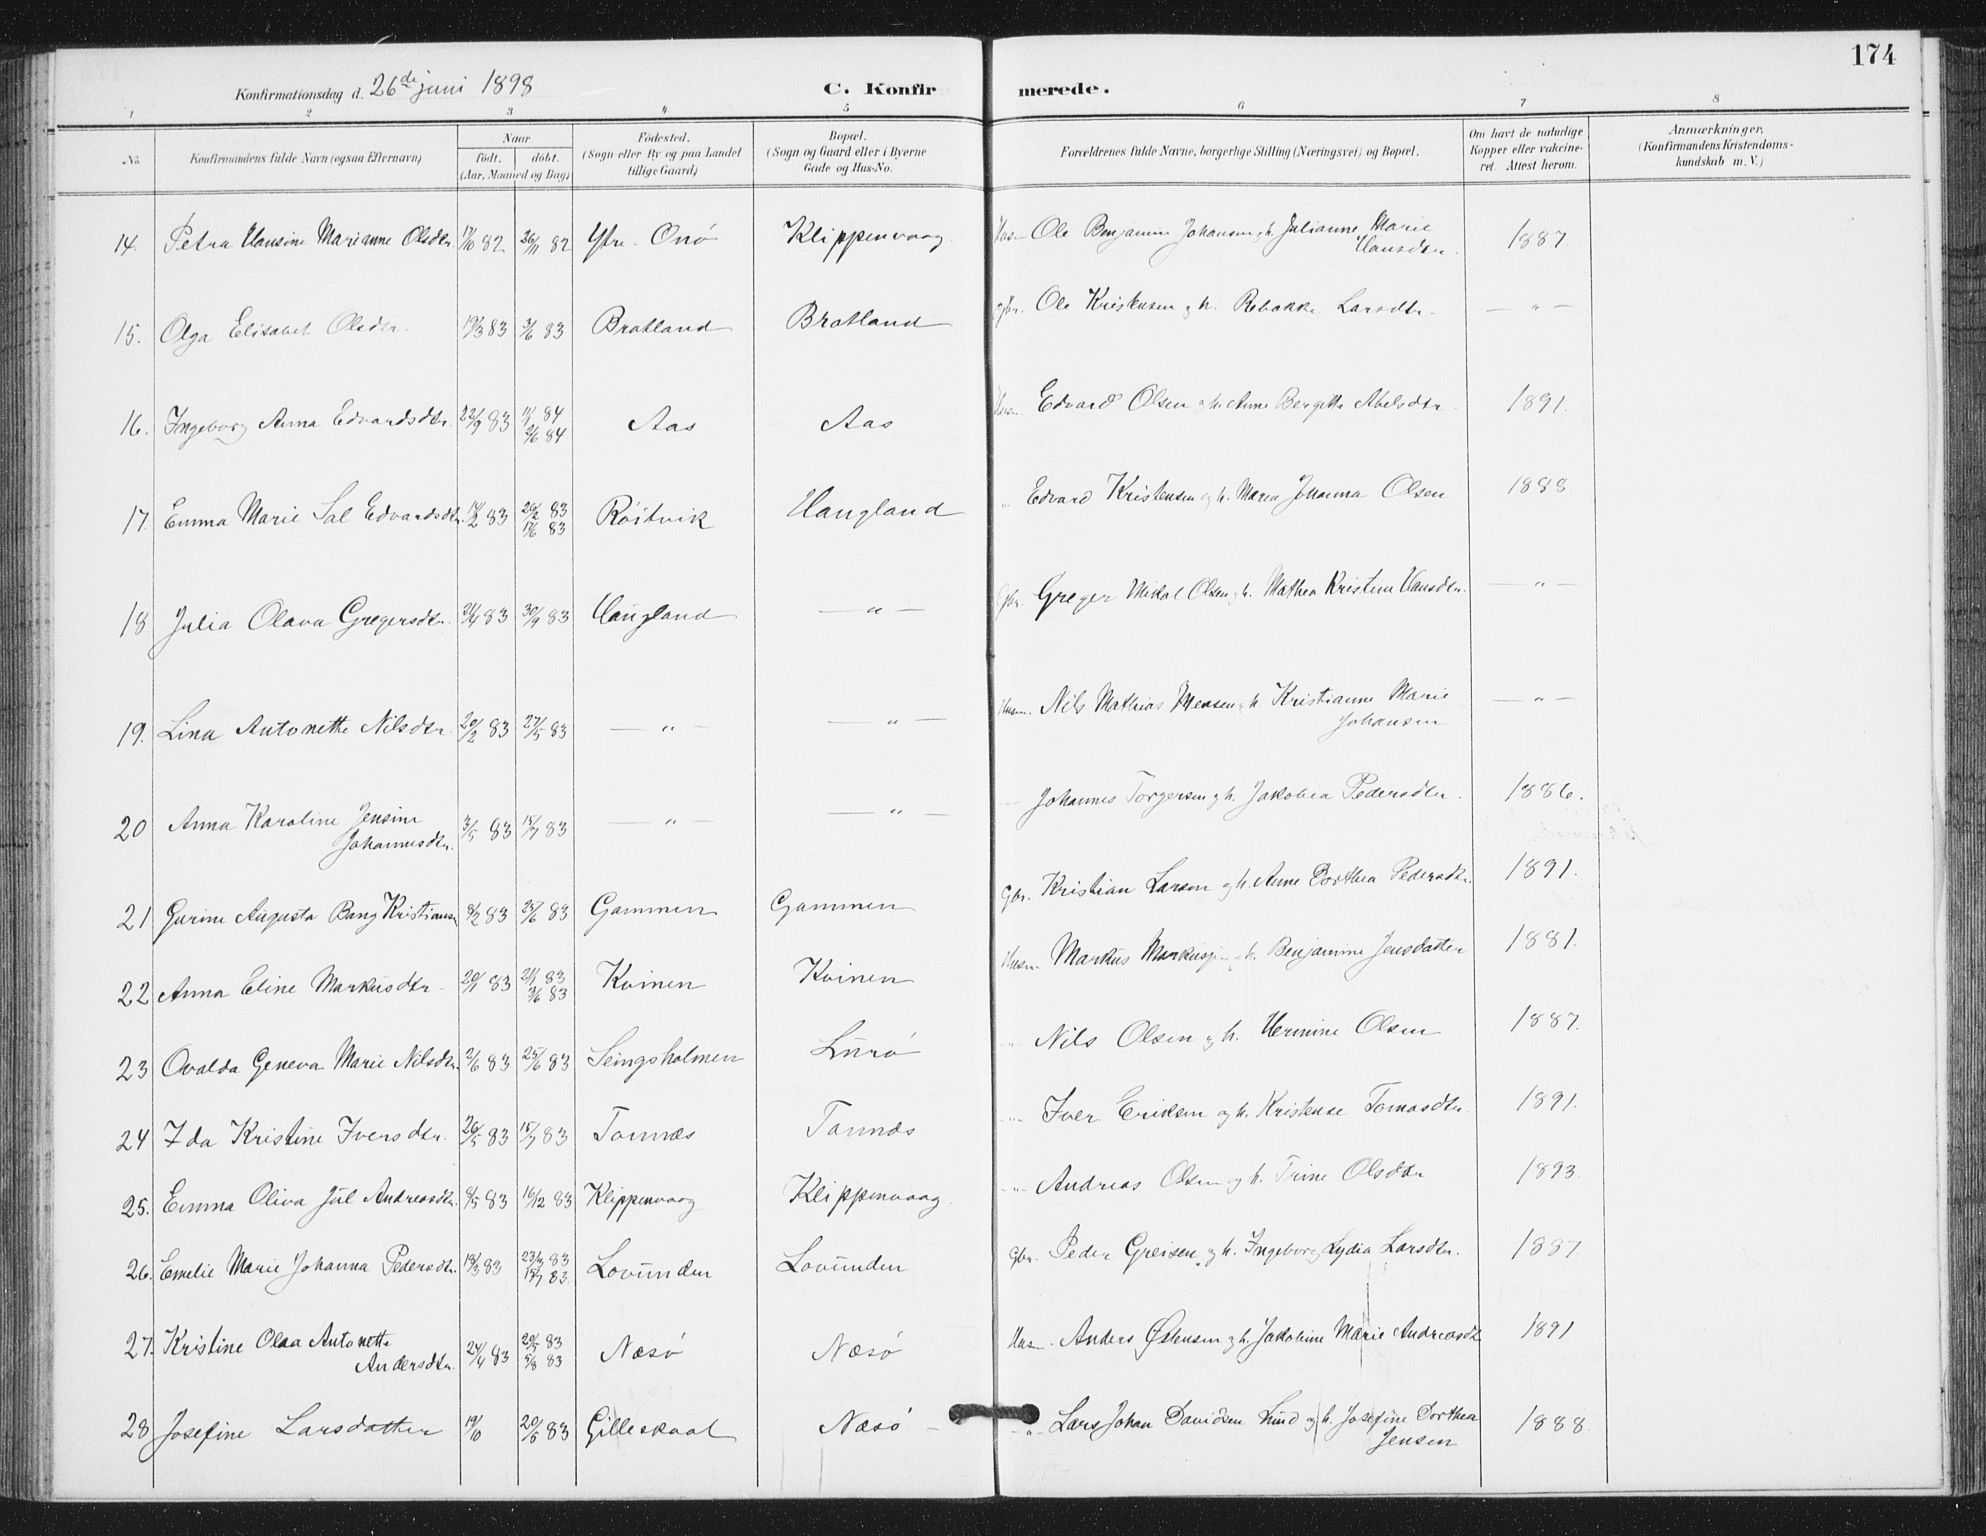 174
Konfirmationsdag d. 26de juni 1898
C. Konfirmerede.
1 2 3 4 5 6 7 8
No.
Konfirmandens fulde Navn (ogsaa Efternavn)
Naar
født. døbt.
(Aar, Maaned og Dag)
Fødested.
(Sogn eller By og paa Landet
tillige Gaard)
Bopæl.
(Sogn og Gaard eller i Byerne
Gade og Hus-No.
Forældrenes fulde Navne, borgerlige Stilling (Næringsvei) og Bopæl.
Om havt de naturlige
Kopper eller vakcine-
ret. Attest herom.
Anmærkninger.
(Konfirmandens Kristendoms-
kundskab m. V.)
14. Petra Hansine Marianne Olsdtr. 17/10 82 26/11 82 Ytre-Onø Klippenvaag. Husm. Ole Benjamin Johansen og h. Julianne Marie Hansdtr. 1887.
15. Olga Elisabet Olsdtr. 19/3 83 3/6 83 Bratland Bratland Gbr. Ole Kristensen og h. Rebakka Larsdtr. — " —
16. Ingeborg Anna Edvardsdtr. 22/9 83 1/1 84 2/6 84 Aas Aas Husm. Edvard Olsen og h. Anne Bergitte Abelsdtr. 1891.
17. Emma Marie Sal Edvardsdtr. 14/2 83 26/2 83 17/6 83 Røstvik Haugland " Edvard Kristensen og h. Maren Johanna Olsen 1888
18 Julia Olava Gregersdtr. 21/4 83 30/9 83 Haugland — " — Gbr. Greger Mikal Olsen og h. Mathea Kristine Hansdtr. — " —
19. Lina Antonette Nilsdtr. 20/2 83 27/5 83 — " — — " — Husm. Nils Mathias Jensen og h. Kristianne Marie Johansen — " —
20 Anna Karoline Jensine Johannesdtr. 3/5 83 15/7 83 — " — — " — Johannes Torgersen og h. Jakobia Pedersdtr. 1886.
21 Gurine Augusta Bang Kristiansd 8/2 83 25/6 83 Gammen Gammen Gbr. Kristian Larsen og h. Anne Dorthea Pedersdtr. 1891.
22 Anna Eline Markusdtr. 20/1 83 21/1 83 3/6 83 Kvinen Kvinen Husm. Markus Markussen og h. Benjamine Jensdatter 1881.
23 Ovalda Geneva Marie Nilsdtr. 2/6 83 25/6 83 Seingsholmen Lurø " Nils Olsen og h. Hermine Olsen 1887.
24 Ida Kristine Iversdtr. 26/5 83 15/7 83 Tonnes Tonnes " Iver Eriksen og h. Kristense Tomasdtr. 1891.
25. Emma Oliva Jul Andreasdtr. 8/5 83 16/12 83 Klippenvaag Klippenvaag. " Andreas Olsen og h. Trine Olsdtr 1893
26. Emelie Marie Johanna Pedersdtr. 18/3 83 23/3 83 15/7 83 Lovunden Lovunden Gbr. Peder Greisen og h. Ingeborg Lydia Larsdtr. 1887
27. Kristine Olaa Antonette Andersdtr. 24/4 83 20/5 83 5/8 83 Næsø Næsø Husm. Anders Østensen og h. Jakobine Marie Andreasdt. 1891
28 Josefine Larsdatter 19/10 20/6 83 Gilleskaal Næsø — " — Lars Johan Davidsen Lund og h. Josefine Dorthea Jensen 1888